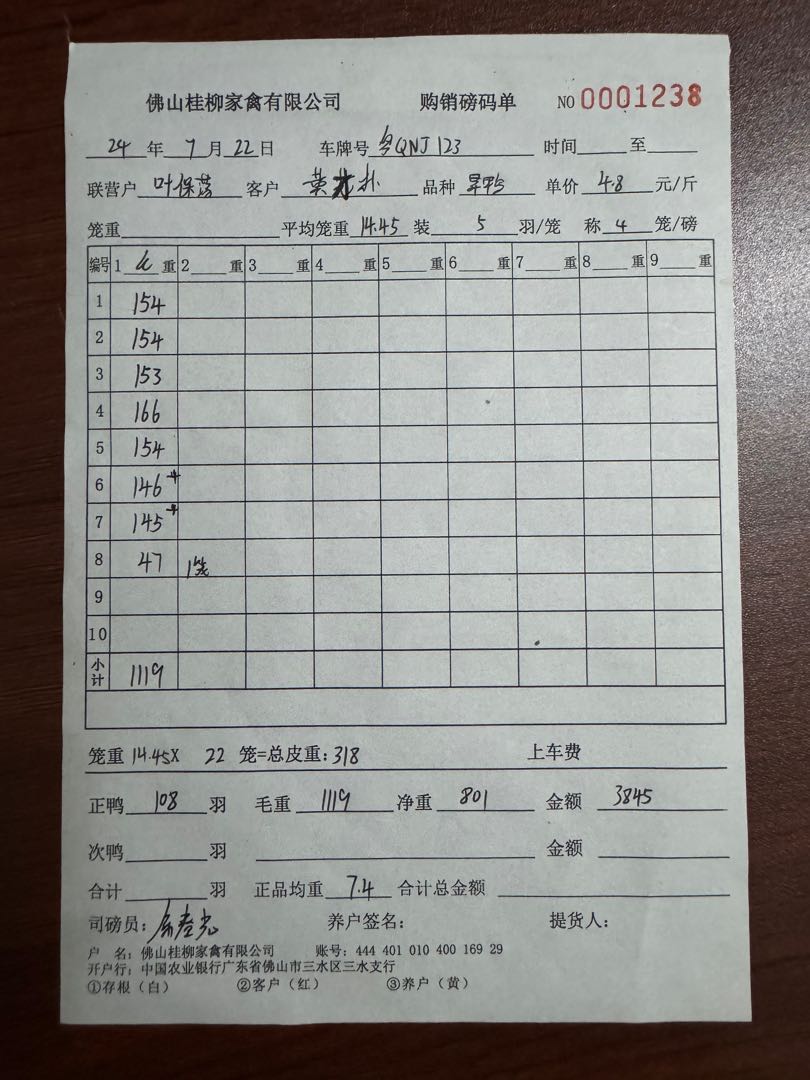 佛山桂柳家禽有限公司 购销磅码单 NO 0001238
24 年 7 月 22 日 车牌号 粤QNJ123 时间 至
联营户 叶保荡 客户 黄 朴 品种 旱鸭 单价 4.8 元/斤
笼重 平均笼重 14.45 装 5 羽/笼 称 4 笼/磅
编号 1 公 重 2 重 3 重 4 重 5 重 6 重 7 重 8 重 9 重
1 154
2 154
3 153
4 166
5 154
6 146
7 145
8 47 1笼
9
10
小计 1119
笼重 14.45X 22 笼=总皮重:318 上车费
正鸭 108 羽 毛重 1119 净重 801 金额 3845
次鸭 羽 金额
合计 羽 正品均重 7.4 合计总金额
司磅员: 养户签名: 提货人:
户 名: 佛山桂柳家禽有限公司 账号: 444 401 010 400 169 29
开户行: 中国农业银行广东省佛山市三水区三水支行
①存根(白) ②客户(红) ③养户(黄)